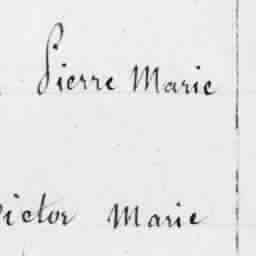 Pierre Marie
Victor Marie